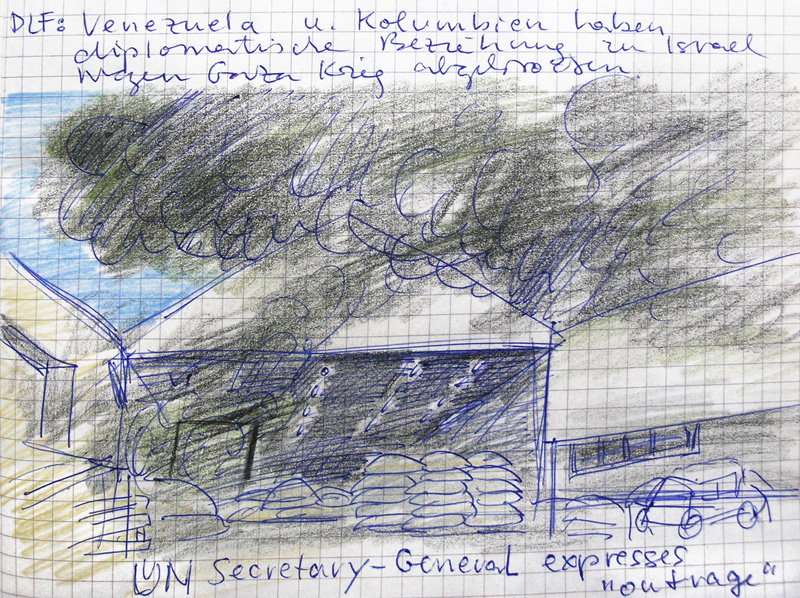 DLF: Venezuela u. Kolumbien haben
diplomatische Beziehung zu Israel
wegen Gaza Krieg abgebrochen.
UN Secretary-General expresses
"outrage"